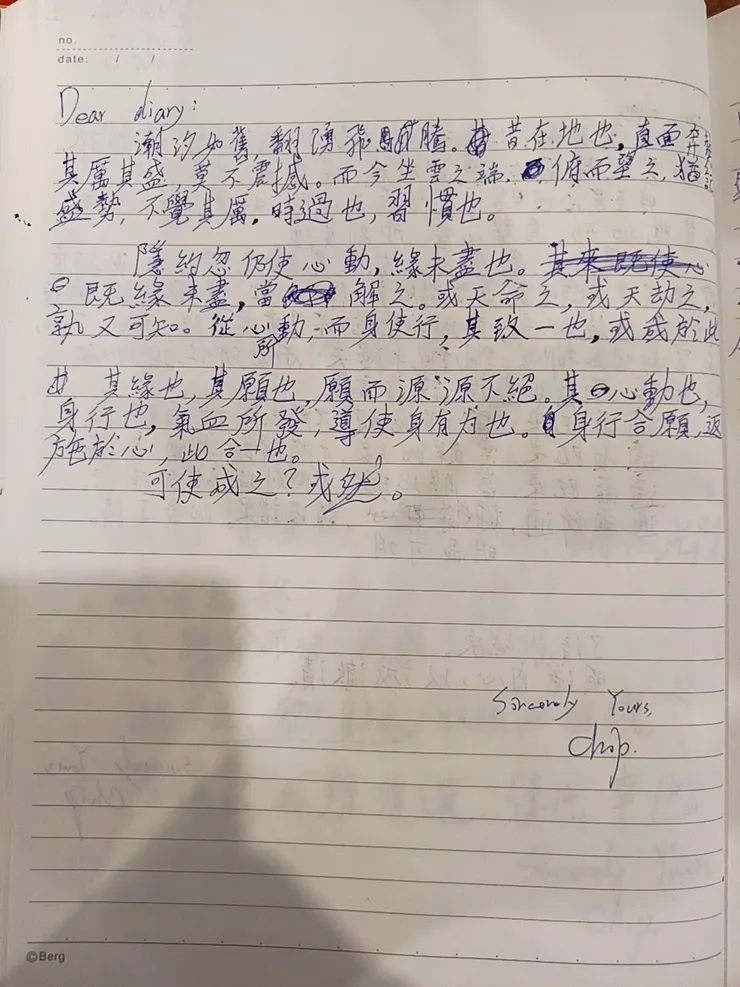 no.
date: / /
Dear diary:
潮汐如舊,翻湧飛騰。昔在地也,直面
其厲其盛,莫不震撼。而今坐雲之端,俯而望之,猶
盛勢,不覺其厲,時過也,習慣也。
隱約忽仍使心動,緣未盡也。
既緣未盡,當解之。或天命之,或天劫之,
孰又可知。從心所動,而身使行,其致一也,或成於此
其緣也,其願也,願而源源不絕。其心動也,
身行也,氣血所發,導使身有為也。身行合願,返
施於心,此合一也。
可使成之?或然。
Sincerely Yours,
Chip.
©Berg